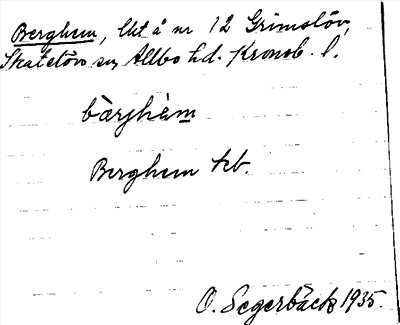 Berghem, lht å nr 12 Grimslöv,
Skatelöv sn, Allbo hd. Kronob. l.
bàrjhèm
Berghem kb.
O. Segerbäck 1935.